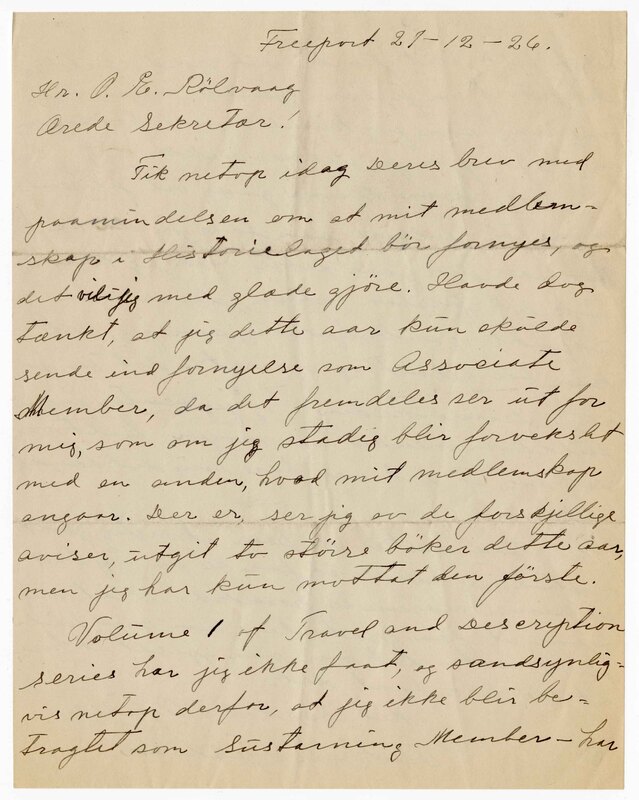 Freeport 27-12-26.
Hr. O. E. Rölvaag
Ærede Sekretær!
Fik netop idag Deres brev med
paamindelsen om at mit medlem=
skap i Historielaget bör fornyes, og
det vil jeg med glæde gjöre. Havde dog
tænkt, at jeg dette aar kun skulde
sende ind fornyelse som Associate
Member, da det fremdeles ser ut for
mig, som om jeg stadig blir forvekslet
med en anden, hvad mit medlemskap
angaar. Der er, ser jeg av de forskjellige
aviser, utgit to större böker dette aar,
men jeg har kun mottat den förste.
Volume 1 of Travel and Description
series har jeg ikke faat, og sandsynlig=
vis netop derfor, at jeg ikke blir be=
tragtet som Sustaining Member — har